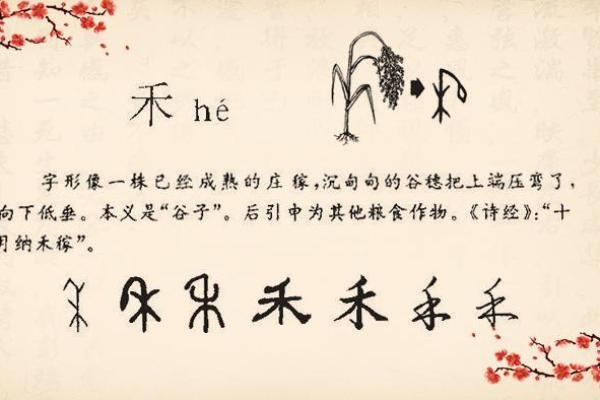 禾 hé
字形像一株已经成熟的庄稼,沉甸甸的谷穗把上端压弯了,
向下低垂。本义是“谷子”。后引申为其他粮食作物。《诗经》:“十
月纳禾稼”。
禾 禾 禾 禾 禾 禾 禾